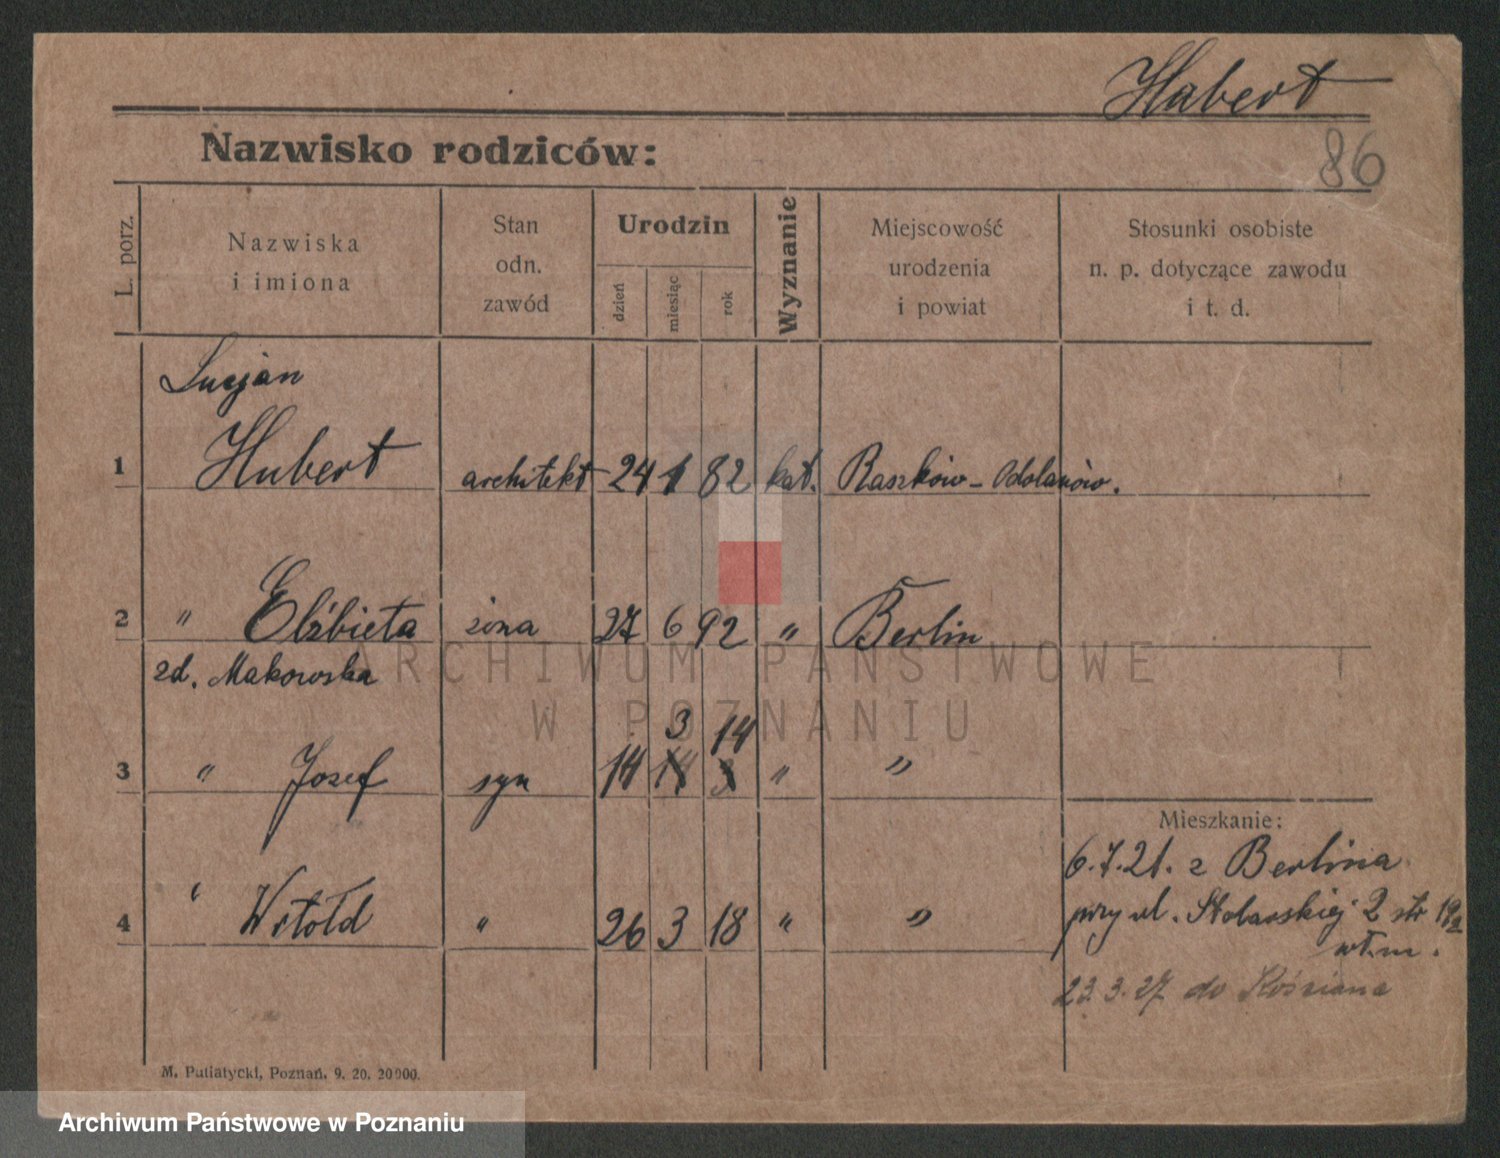 Habert
86
Nazwisko rodziców:
L. porz.
Nazwiska
i imiona
Stan
odn.
zawód
Urodzin
dzień
miesiąc
rok
Wyznanie
Miejscowość
urodzenia
i powiat
Stosunki osobiste
n. p. dotyczące zawodu
i t. d.
Lucjan
1 Hubert architekt 24 1 82 kat. Raszków - Odolanów.
2 " Elżbieta żona 27 6 92 " Berlin
zd. Makowska
3 14
3 " Józef syn 14 14 3 " "
Mieszkanie:
6.7.21. z Berlina
4 " Witołd " 26 3 18 " "
przy ul. Stolarskiej 2 str 19
wł. m.
23.3.27 do Kościana
M. Putiatycki, Poznań. 9. 20. 20000.
ARCHIWUM PAŃSTWOWE
W POZNANIU
Archiwum Państwowe w Poznaniu